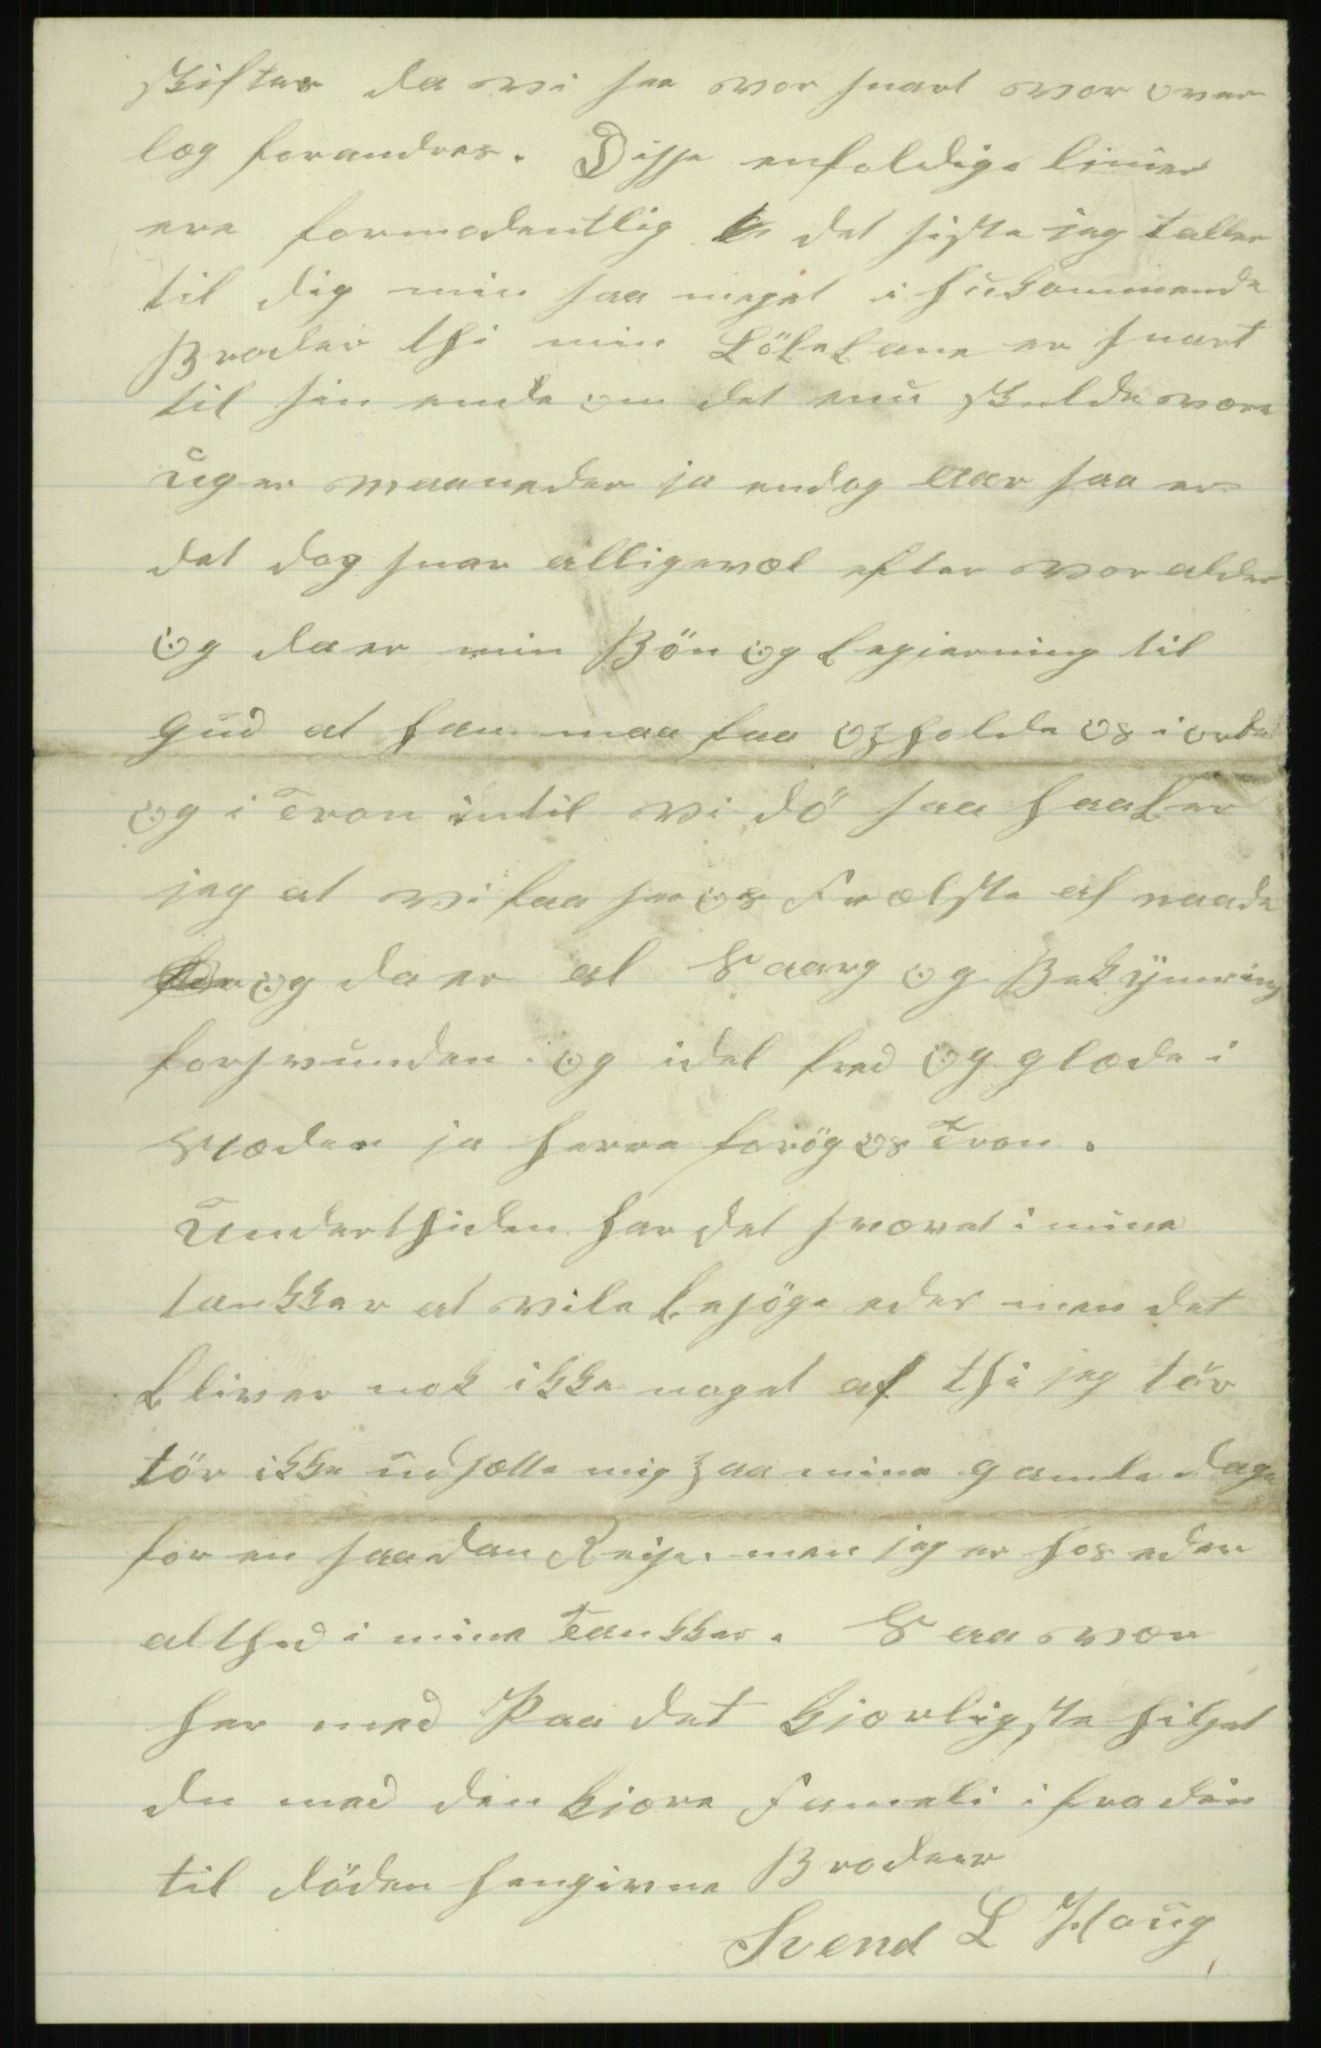 skifter da wi see wor snart wor over
læg forandres. Disse enfoldige linier
ere formodentlig det siste jeg taller
til dig min saa meget i hukommende
Broder thi min Löbebane er snart
til sin ende om det enu skulde være
uger maaneder ja endog aar saa er
det dog snar alligevæl efter wor alder
og da er min Bön og begierning til
gud at han maa faa opholde os i ordet
og i Tron intil wi dö saa haaber
jeg at wi faa see os Frælste af naade
og da er al Saarg og Bekymring
forsvunden. og idel fred og glæde i
Stæden ja herre forög os Tron.
Underthiden har det svævet i mine
tankker at wile besöge eder men det
bliver nok ikke noget af thi jeg tör
tör ikke udsætte mig paa mine gamle dage
for en saadan Reise. men jeg er hos eder
althid i mine Tankker. Saa wær
her med Paa det kjærligste hilset
du med din kjære Fameli i fra din
til döden hengivne Broder
Svend L Haug